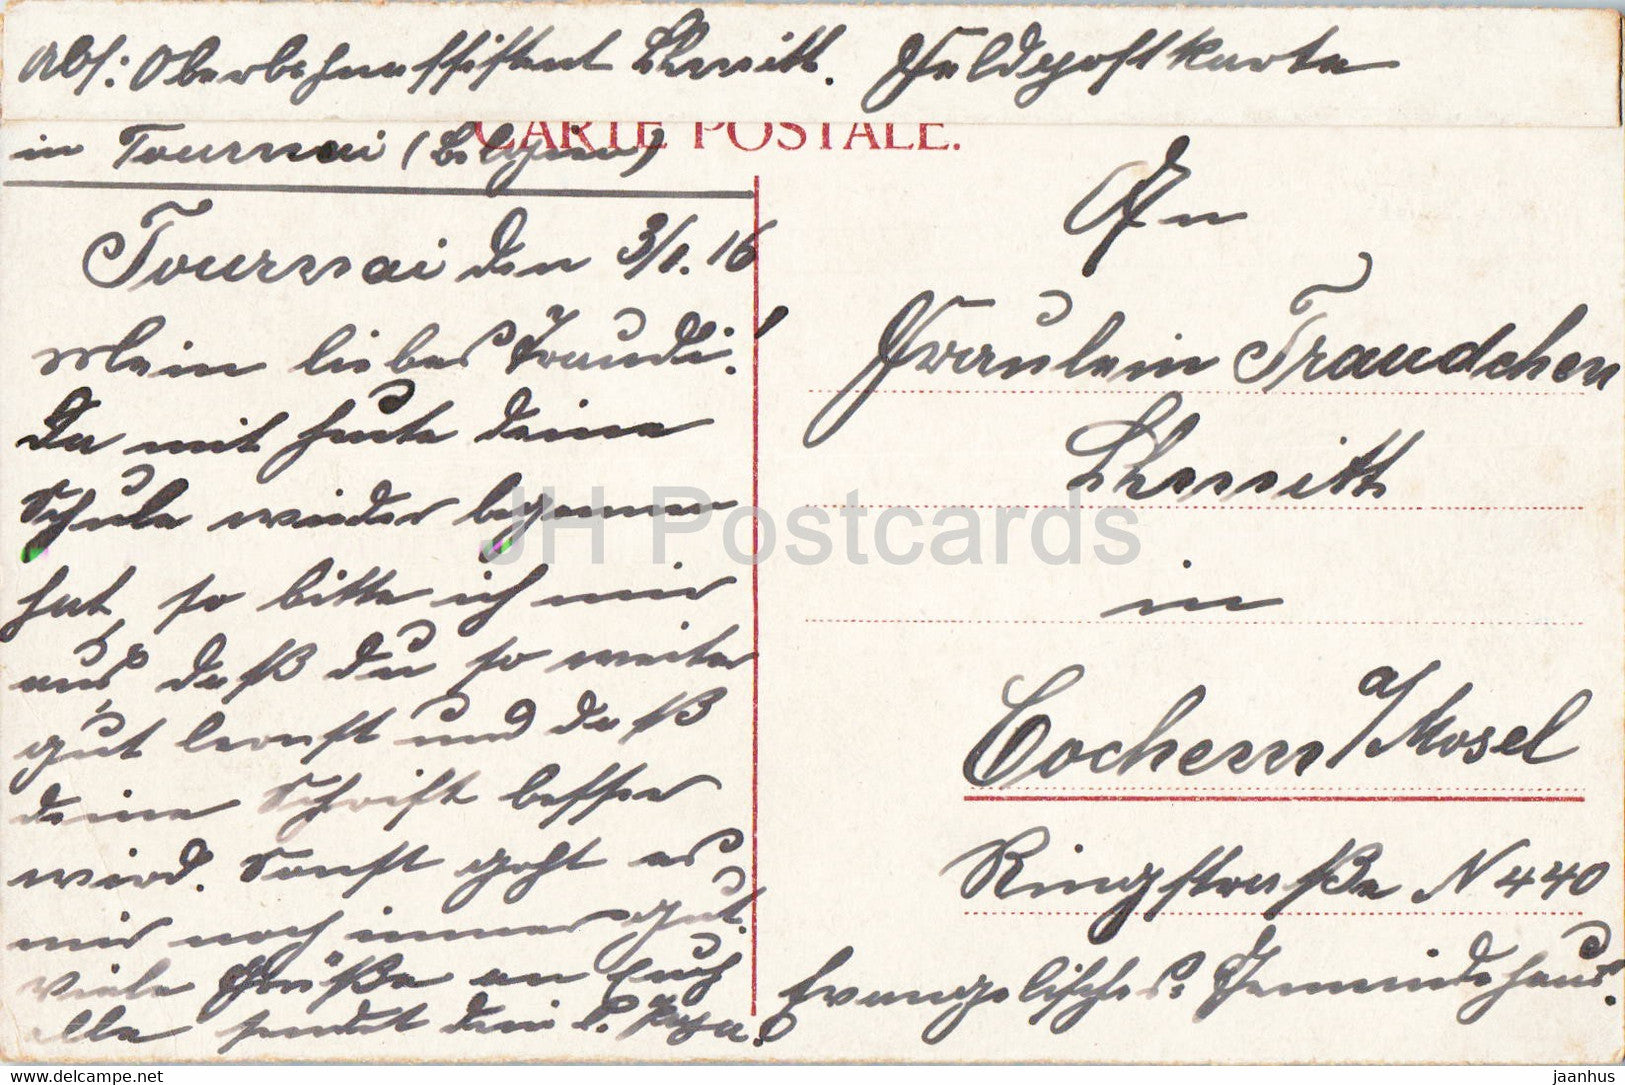 Abs: Oberbahnassistent Schmitt. Feldpostkarte
in Tournai (Belgien)
CARTE POSTALE.
Tournai den 3/1. 16
Mein liebes Traudli!
Da mit heute deine
Schule wieder begonnen
hat, so bitte ich mir
aus, daß du so weiter
gut lernst und daß
deine Schrift besser
wird. Sonst geht es
mir noch immer gut.
Viele Grüße an Euch
alle sendet dein l. Papa!
An
Fräulein Traudchen
Schmitt
in
Cochem a/Mosel
Ringstraße N 440
Evangelisches Gemeindehaus.
JH Postcards
https://www.delcampe.net
jaanhus